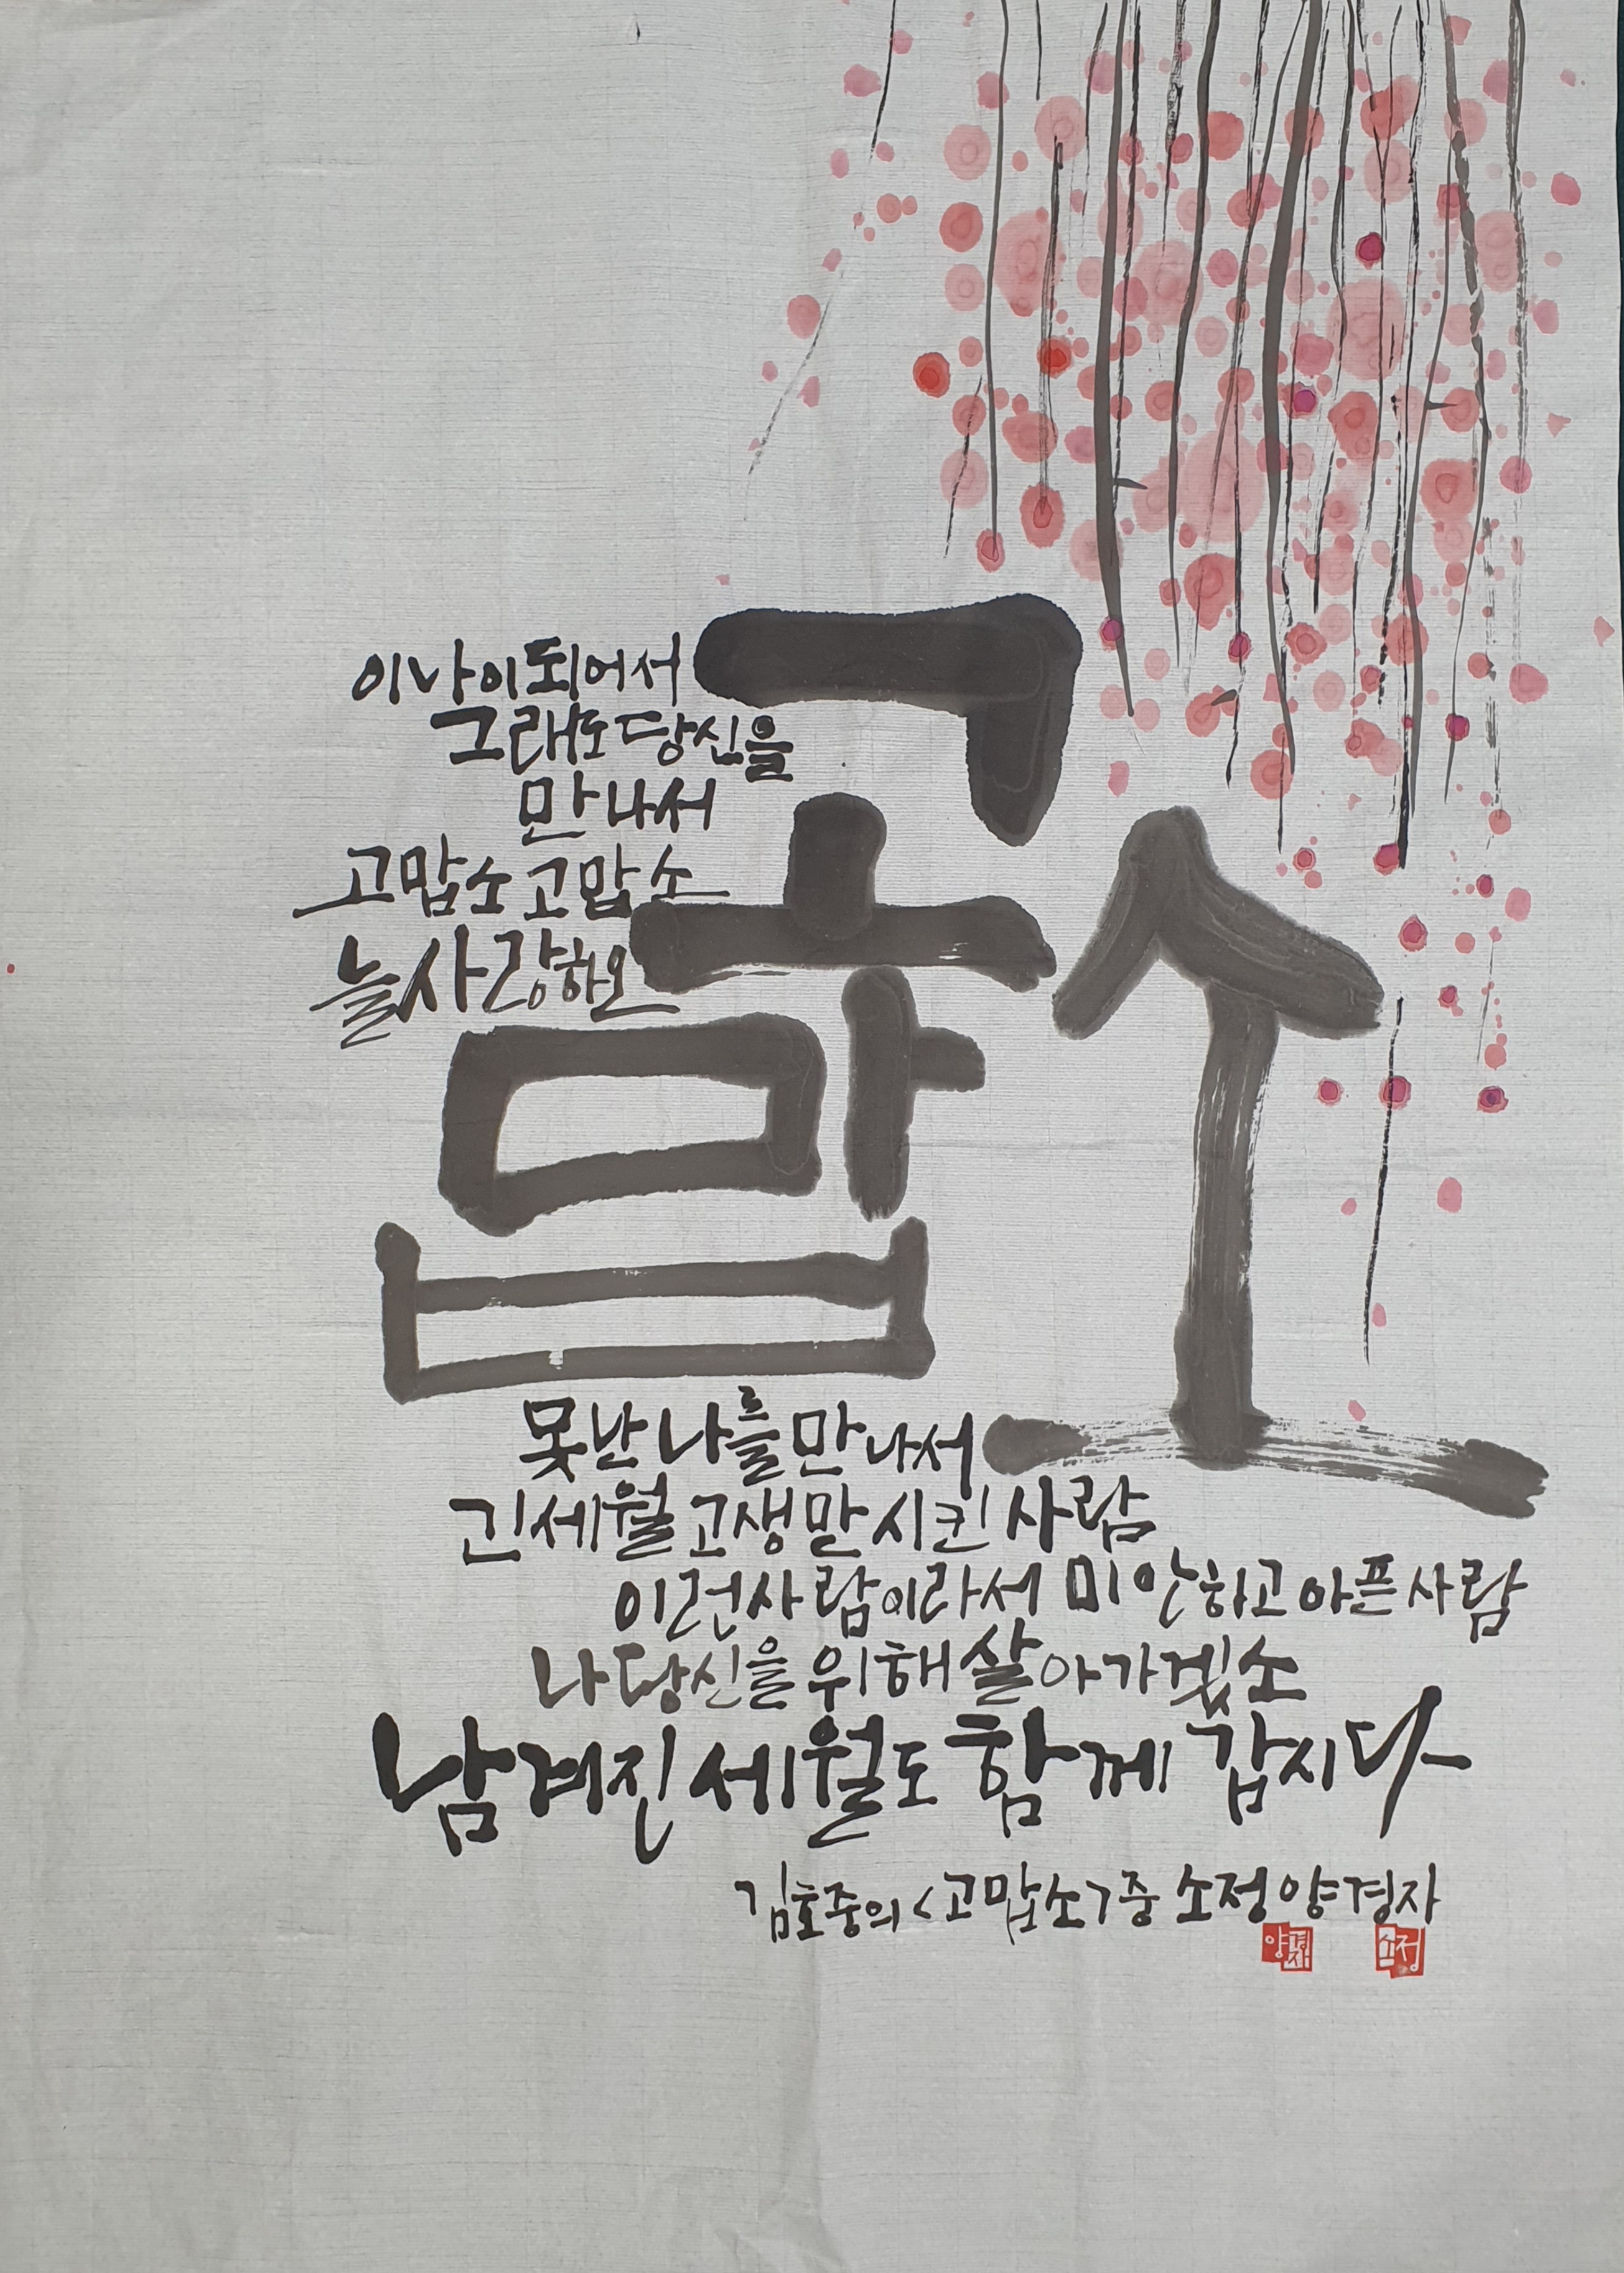 이 나이 되어서
그래도 당신을
만나서
고맙소 고맙소
늘 사랑하오
고맙소
못난 나를 만나서
긴 세월 고생만 시킨 사람
이런 사람이라서 미안하고 아픈 사람
나 당신을 위해 살아가겠소
남겨진 세월도 함께 갑시다
김호중의 <고맙소> 중 소정 양경자
양경자 소정